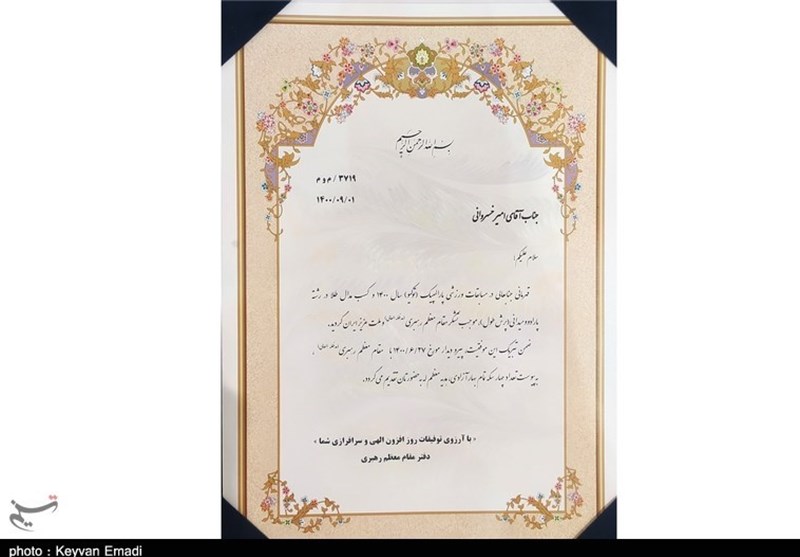 بسم الله الرحمن الرحیم
۳۷۱۹ / م و م
۱۴۰۰/۰۹/۰۱
جناب آقای امیر خسروانی
سلام علیکم؛
قهرمانی جنابعالی در مسابقات ورزشی پارالمپیک (توکیو) سال ۱۴۰۰ و کسب مدال طلا در رشته
پارادوومیدانی (پرش طول)، موجب تشکر مقام معظم رهبری (مدظله‌العالی) و ملت عزیز ایران گردید.
ضمن تبریک این موفقیت، پیرو دیدار مورخ ۱۴۰۰/۶/۲۷ با مقام معظم رهبری (مدظله‌العالی)،
به پیوست تعداد چهار سکه تمام بهار آزادی، هدیه معظم له به حضورتان تقدیم می گردد.
« با آرزوی توفیقات روز افزون الهی و سرافرازی شما »
دفتر مقام معظم رهبری
تسنیم
photo : Keyvan Emadi